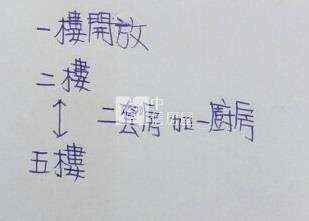 一樓開放
二樓
↕ 二套房加一廚房
五樓